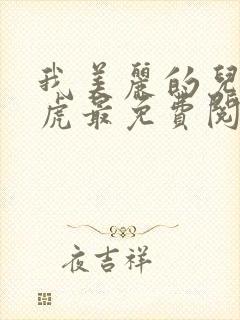 我美麗的兒
虎最免費閱
夜吉祥